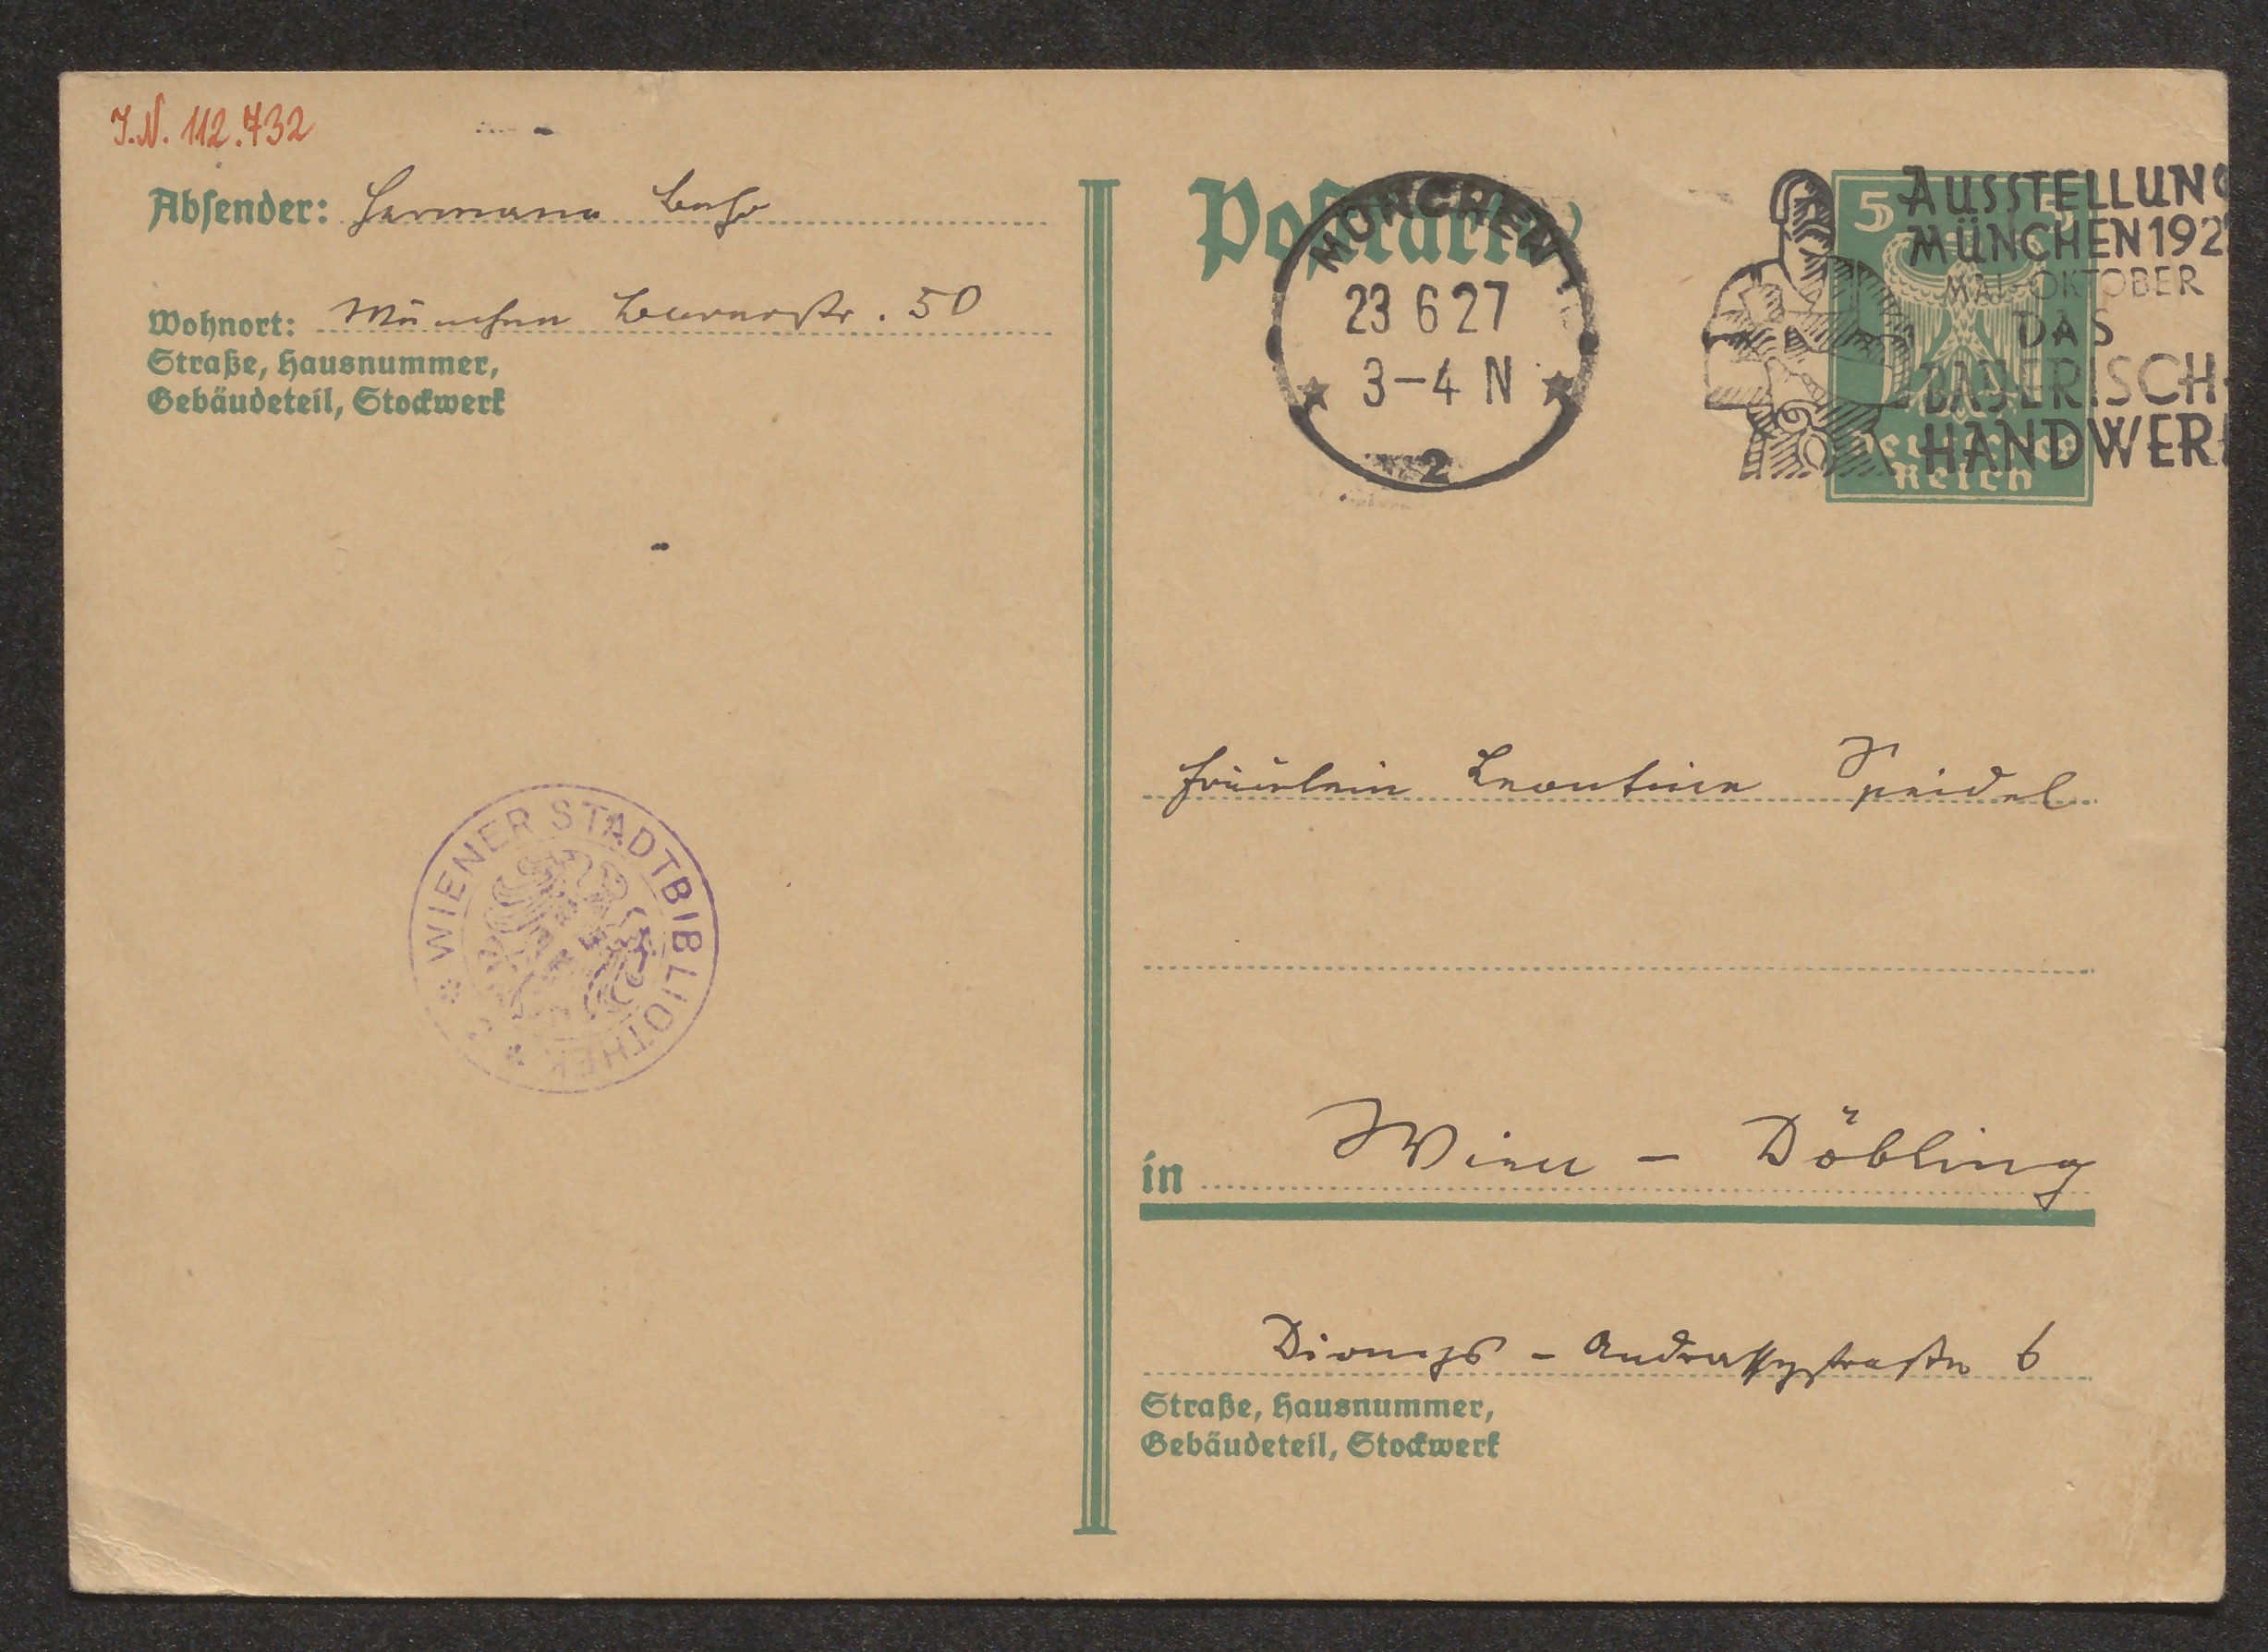 I.N. 112.732
Absender: Hermann Bahr
Wohnort: München Barerstr. 50
Straße, Hausnummer,
Gebäudeteil, Stockwerk
WIENER STADTBIBLIOTHEK
Postkarte
MÜNCHEN
23 6 27
3-4 N
2
5
AUSSTELLUNG
MÜNCHEN 192
MAI-OKTOBER
DAS
BAYERISCH
HANDWER
Deutsches
Reich
Fräulein Leontine Speidel
in Wien - Döbling
Dionys - Andrassystraße 6
Straße, Hausnummer,
Gebäudeteil, Stockwerk